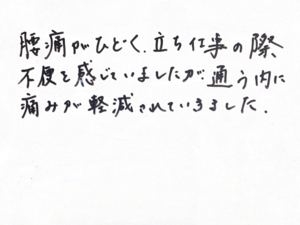 腰痛がひどく、立ち仕事の際、
不便を感じていましたが通う内に
痛みが軽減されていきました.